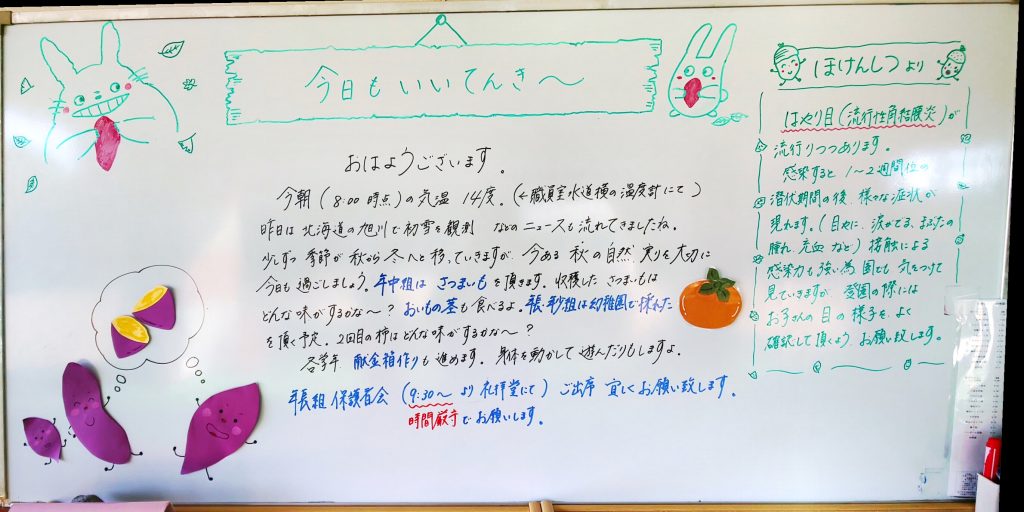 今日もいいてんき〜
おはようございます。
今朝(8:00時点)の気温 14度。(←職員室水道横の温度計にて)
昨日は北海道の旭川で初雪を観測 などのニュースも流れてきましたね。
少しずつ 季節が秋から冬へと移っていきますが 今ある秋の自然、実りを大切に
今日も過ごしましょう。年中組は さつまいもを頂きます。収穫したさつまいもは
どんな味がするかな〜? おいもの茎も食べるよ。長・
組は幼稚園で採れた
を頂く予定。2回目の柿はどんな味がするかな〜?
各学年 献金箱作りも進めます。身体を動かして遊んだりもしますよ。
年長組 保護者会 (9:30〜より礼拝堂にて) ご出席 宜しくお願い致します。
時間厳守でお願いします。
ほけんしつより
はやり目(流行性角結膜炎)が
流行りつつあります。
感染すると 1〜2週間位の
潜伏期間の後、様々な症状が
現れます。(目やに、涙がでる、まぶたの
腫れ、充血など) 接触による
感染力も強い為 園でも気をつけて
見ていきますが、登園の際には
お子さんの目の様子を、よく
確認して頂くよう お願い致します。